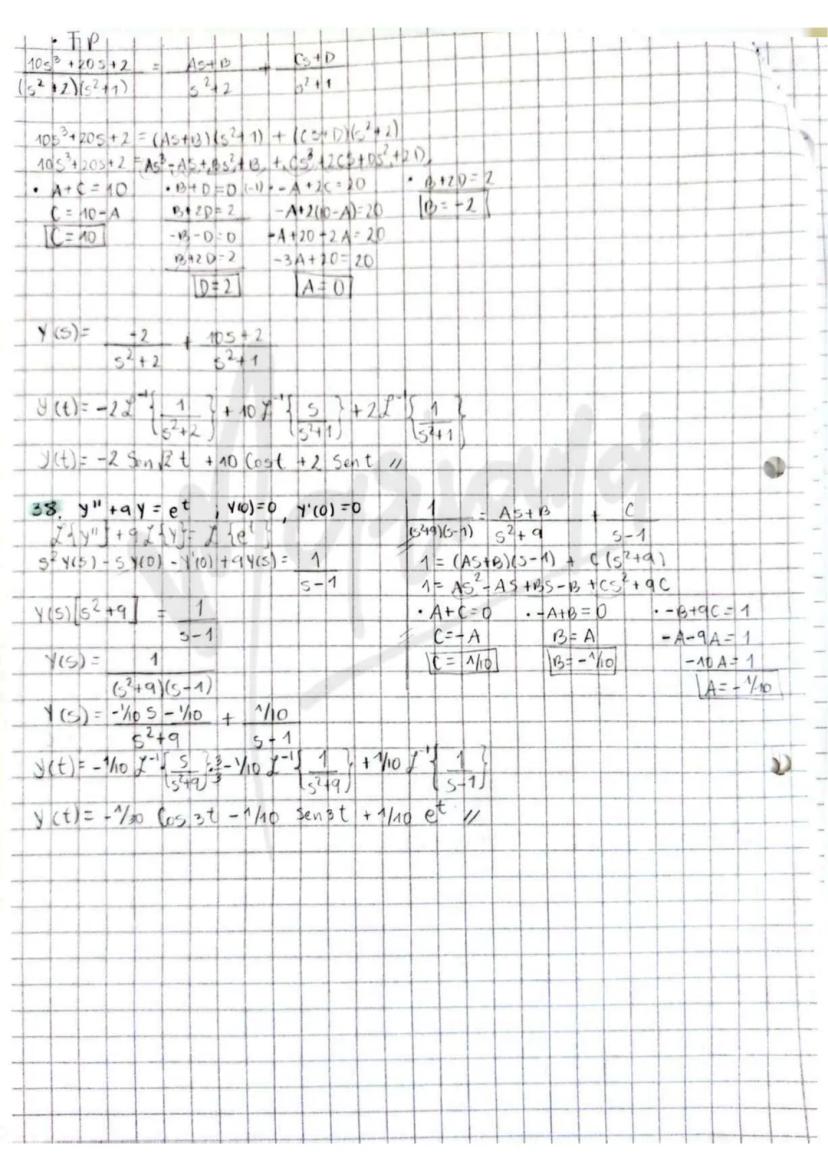 · FIP
10s³+20s+2 / (s²+2)(s²+1) = As+B / s²+2 + Cs+D / s²+1
10s³+20s+2 = (As+B)(s²+1) + (Cs+D)(s²+2)
10s³+20s+2 = As³+As+Bs²+B+Cs³+2Cs+Ds²+2D
· A+C=10 · B+D=0 (-1) · -A+2C=20 · B+2D=2
C=10-A B+2D=2 -A+2(10-A)=20 B=-2
C=10 -B-D=0 -A+20-2A=20
B+2D=2 -3A+20=20
D=2 A=0
Y(s)= -2 / s²+2 + 10s+2 / s²+1
y(t)= -2 L⁻¹{1 / s²+2} + 10 L⁻¹{s / s²+1} + 2 L⁻¹{1 / s²+1}
y(t)= -2 Sen√2 t + 10 Cos t + 2 Sen t //
38. y'' + 9y = e^t , y(0)=0, y'(0)=0
L{y''} + 9L{y} = L{e^t}
s²Y(s) - sY(0) - Y'(0) + 9Y(s) = 1 / s-1
Y(s)[s²+9] = 1 / s-1
Y(s) = 1 / (s²+9)(s-1)
Y(s) = -1/10 s - 1/10 / s²+9 + 1/10 / s-1
1 / (s²+9)(s-1) = As+B / s²+9 + C / s-1
1 = (As+B)(s-1) + C(s²+9)
1 = As²-As+Bs-B+Cs²+9C
· A+C=0 · -A+B=0 · -B+9C=1
C=-A B=A -A-9A=1
C=1/10 B=-1/10 -10A=1
A=-1/10
y(t)= -1/10 L⁻¹{s / s²+9}·3/3 - 1/10 L⁻¹{1 / s²+9} + 1/10 L⁻¹{1 / s-1}
y(t)= -1/30 Cos 3t - 1/10 Sen3t + 1/10 e^t //